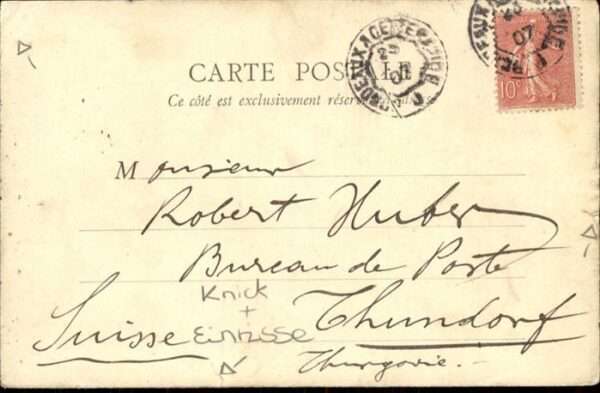 CARTE POSTALE
Ce côté est exclusivement
10c
25
07
BORDEAUX
GIRONDE
25
07
Monsieur
Robert Huber
Bureau de Poste
Knick
+
Suisse Einrisse Thundorf
Thurgovie.-